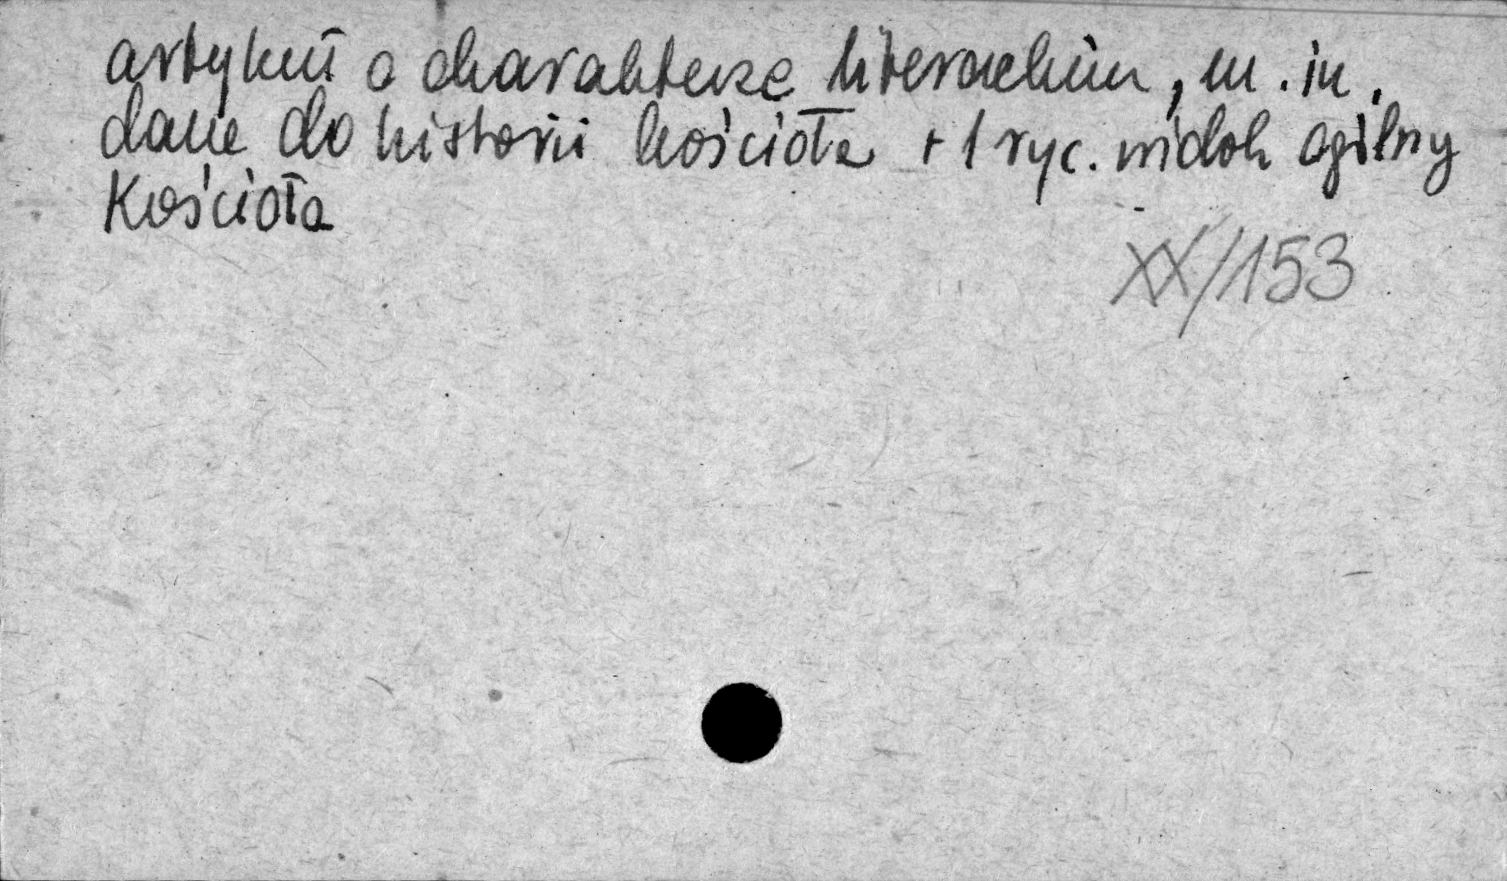 artykuł o charakterze literackim, m. in.
dane do historii kościoła + 1 ryc. widok ogólny
Kościoła
XX/153